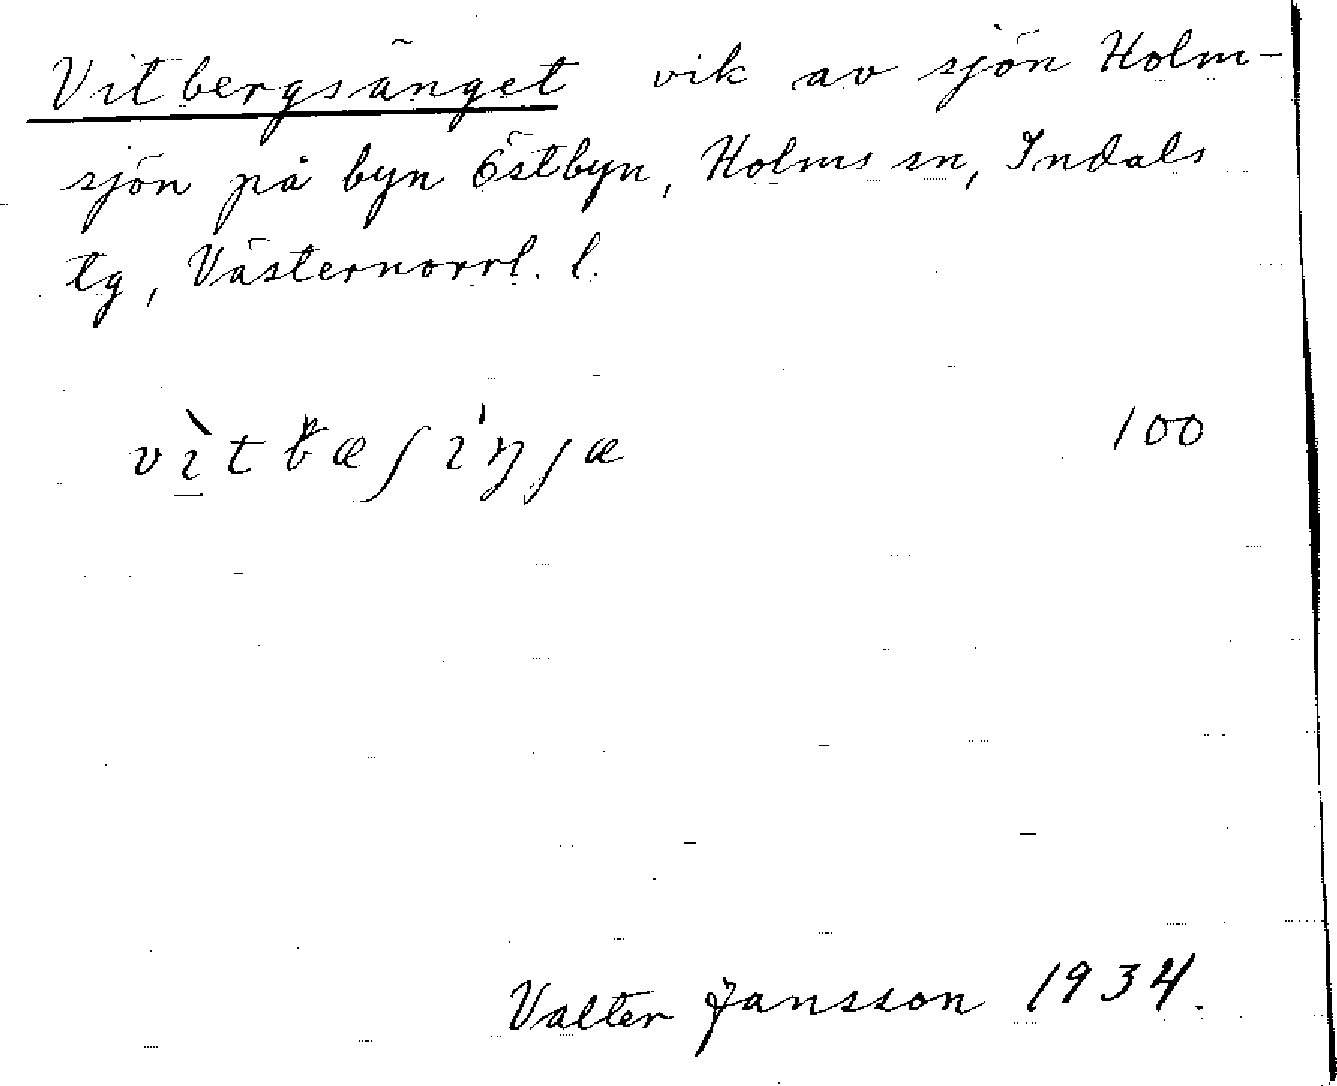 Vitbergsänget vik av sjön Holm-
sjön på byn Östbyn, Holms sn, Indals
tg, Västernorrl. l.
100
Valter Jansson 1934.